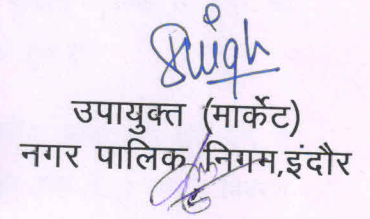 Singh
उपायुक्त (मार्केट)
नगर पालिक निगम,इंदौर